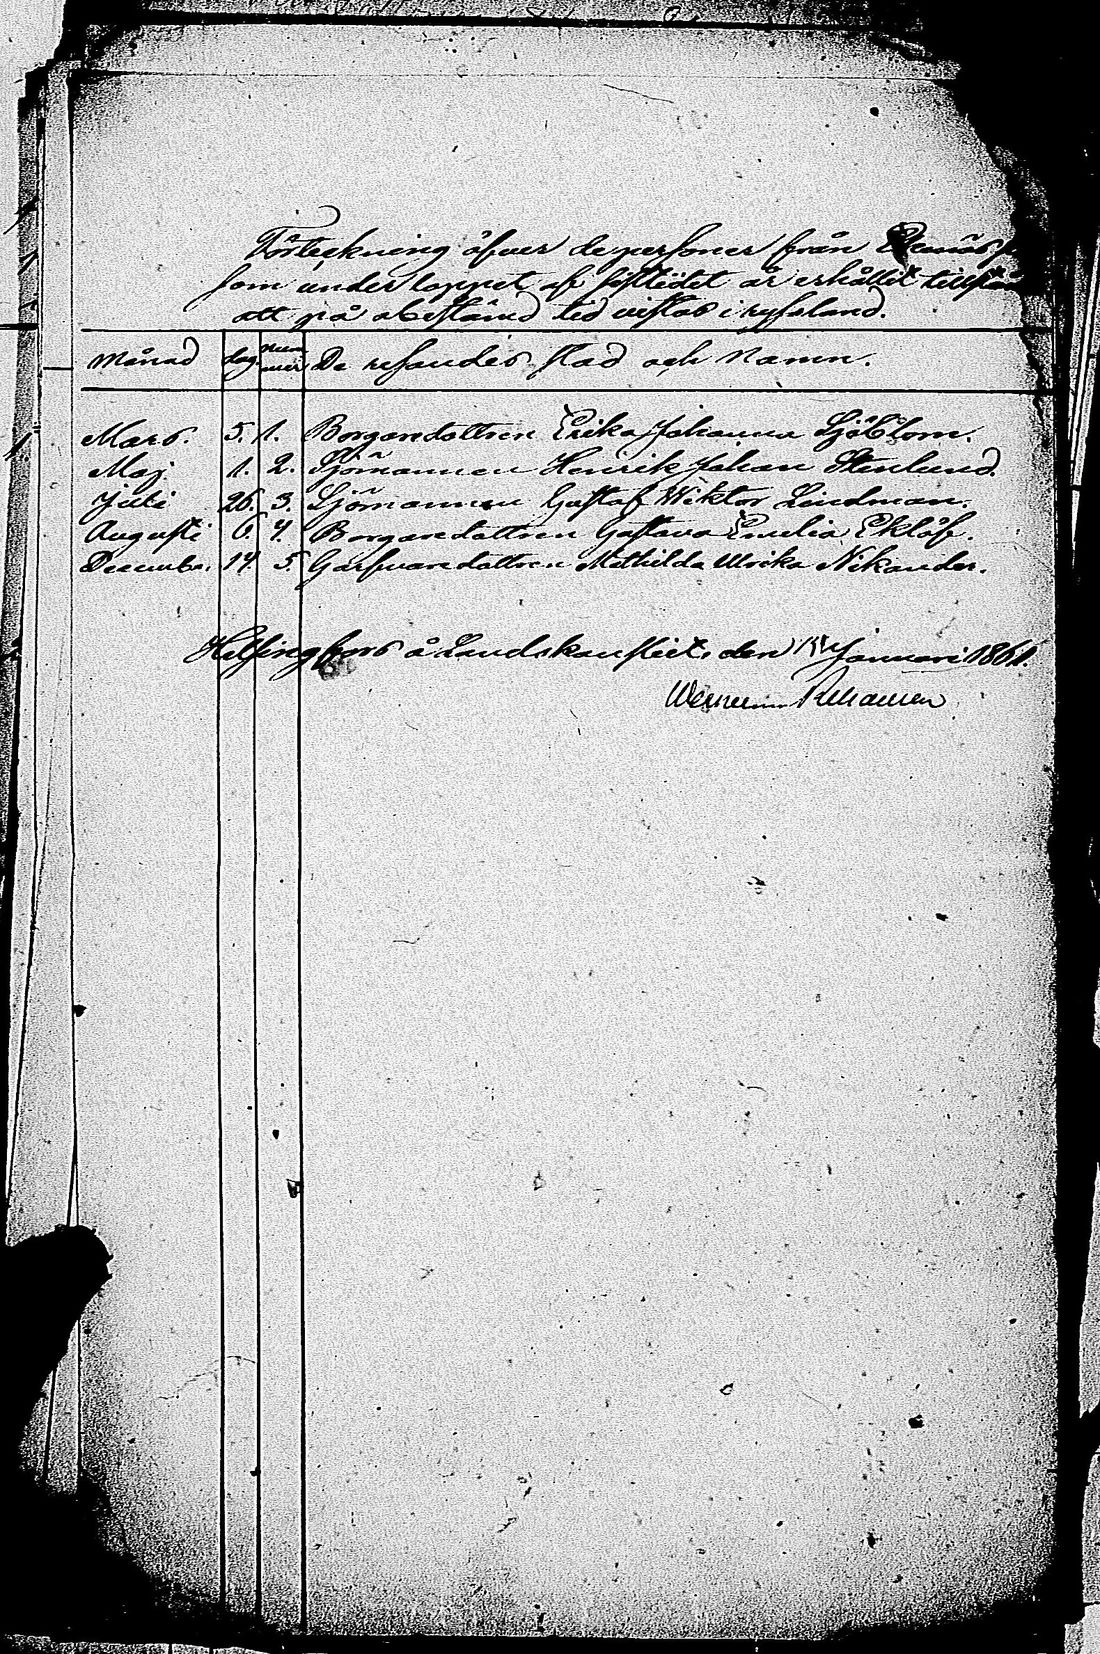 Förteckning öfver de personer från Ekenäs,
som under loppet af sistledet år erhållit tillstånd
att på obestämd tid vistas i ryssland.
Månad dag Num mer De resandes stad och Namn.
Mars. 5. 1. Borgaredottren Erika Johanna Sjöblom.
Maj 1. 2. Sjömannen Henrik Johan Stenlund.
Juli 26. 3. Sjömannen Gustaf Wiktor Lindman.
Augusti 6. 4. Borgaredottren Gustava Emelia Eklöf.
December. 14 5. Garfvaredottren Mathilda Ulrika Nikander.
Helsingfors å Landskansliet, den Januari 1861.